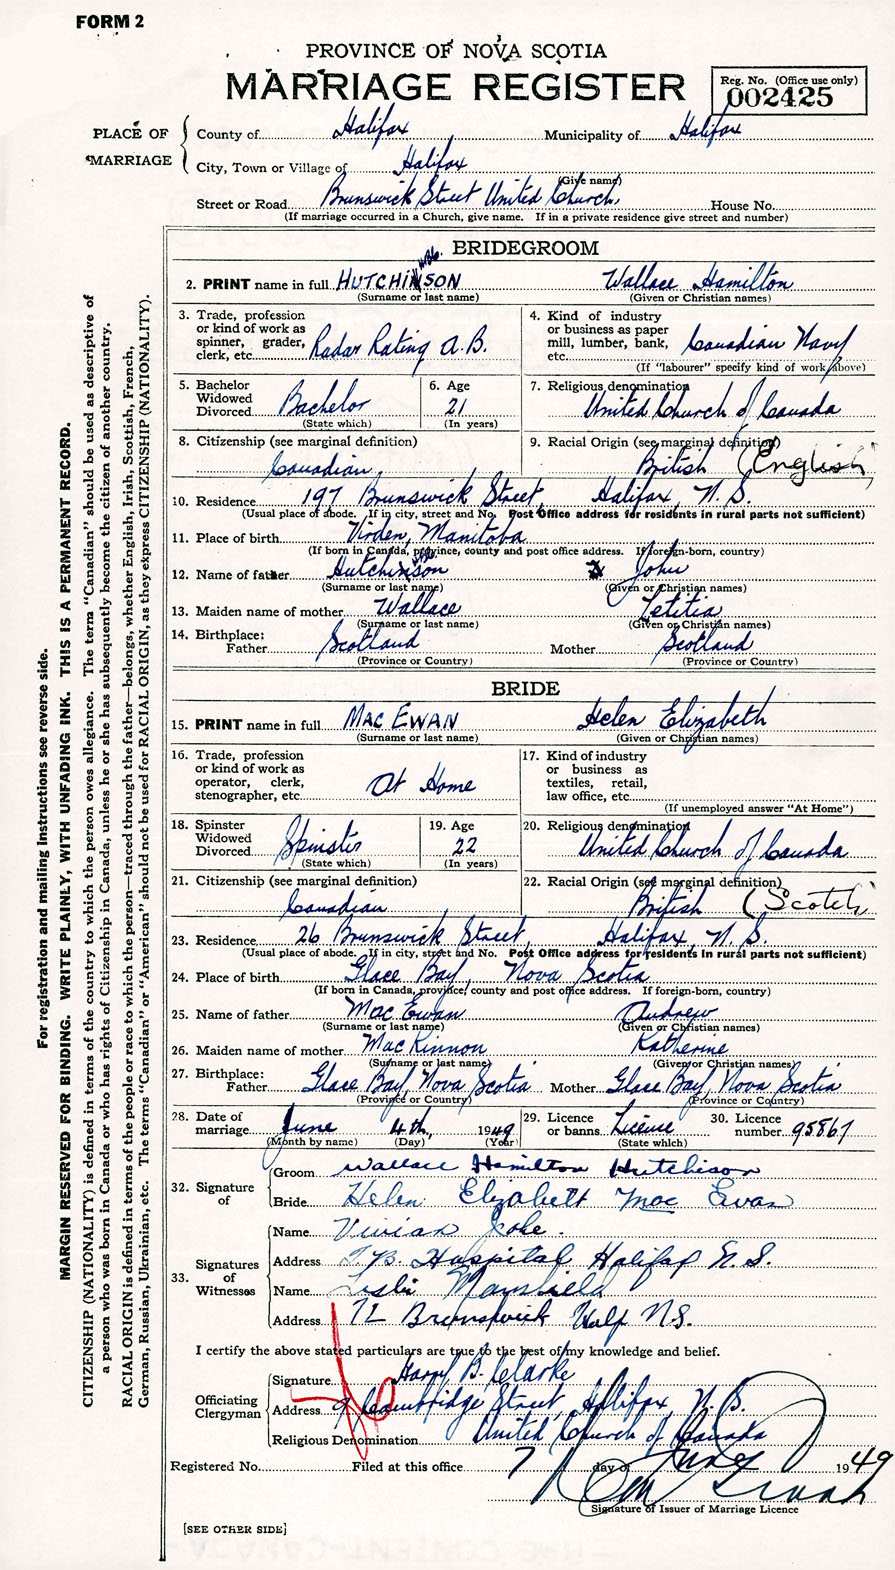 FORM 2
PROVINCE OF NOVA SCOTIA
MARRIAGE REGISTER
Reg. No. (Office use only)
002425
PLACE OF MARRIAGE
County of Halifax Municipality of Halifax
City, Town or Village of Halifax
(Give name)
Street or Road Brunswick Street United Church, House No.
(If marriage occurred in a Church, give name. If in a private residence give street and number)
BRIDEGROOM
2. PRINT name in full HUTCHINSON Wallace Hamilton
(Surname or last name) (Given or Christian names)
3. Trade, profession or kind of work as spinner, grader, clerk, etc. Radar Rating A.B.
4. Kind of industry or business as paper mill, lumber, bank, etc. Canadian Navy
(If "labourer" specify kind of work above)
5. Bachelor Widowed Divorced Bachelor
(State which)
6. Age 21
(In years)
7. Religious denomination United Church of Canada
8. Citizenship (see marginal definition) Canadian
9. Racial Origin (see marginal definition) British (English)
10. Residence 197 Brunswick Street, Halifax, N.S.
(Usual place of abode. If in city, street and No. Post Office address for residents in rural parts not sufficient)
11. Place of birth Virden, Manitoba
(If born in Canada, province, county and post office address. If foreign-born, country)
12. Name of father Hutchinson John
(Surname or last name) (Given or Christian names)
13. Maiden name of mother Wallace Letitia
(Surname or last name) (Given or Christian names)
14. Birthplace: Father Scotland Mother Scotland
(Province or Country) (Province or Country)
BRIDE
15. PRINT name in full MAC EWAN Helen Elizabeth
(Surname or last name) (Given or Christian names)
16. Trade, profession or kind of work as operator, clerk, stenographer, etc. At Home
17. Kind of industry or business as textiles, retail, law office, etc.
(If unemployed answer "At Home")
18. Spinster Widowed Divorced Spinster
(State which)
19. Age 22
(In years)
20. Religious denomination United Church of Canada
21. Citizenship (see marginal definition) Canadian
22. Racial Origin (see marginal definition) British (Scotch)
23. Residence 26 Brunswick Street, Halifax, N.S.
(Usual place of abode. If in city, street and No. Post Office address for residents in rural parts not sufficient)
24. Place of birth Glace Bay, Nova Scotia
(If born in Canada, province, county and post office address. If foreign-born, country)
25. Name of father Mac Ewan Andrew
(Surname or last name) (Given or Christian names)
26. Maiden name of mother Mac Kinnon Katherine
(Surname or last name) (Given or Christian names)
27. Birthplace: Father Glace Bay, Nova Scotia Mother Glace Bay, Nova Scotia
(Province or Country) (Province or Country)
28. Date of marriage June 4th, 1949
(Month by name) (Day) (Year)
29. Licence or banns License
(State which)
30. Licence number 95867
32. Signature of
Groom Wallace Hamilton Hutchison
Bride Helen Elizabeth Mac Ewan
33. Signatures of Witnesses
Name Vivian
Address T.B. Hospital Halifax N.S.
Name Leslie Mansfield
Address 72 Brunswick Half N.S.
I certify the above stated particulars are true to the best of my knowledge and belief.
Officiating Clergyman
Signature Harry B. Clarke
Address 9 Cambridge Street, Halifax, N.S.
Religious Denomination United Church of Canada
Registered No. Filed at this office 7 day of June 1949
Signature of Issuer of Marriage Licence
[SEE OTHER SIDE]
For registration and mailing instructions see reverse side.
MARGIN RESERVED FOR BINDING. WRITE PLAINLY, WITH UNFADING INK. THIS IS A PERMANENT RECORD.
CITIZENSHIP (NATIONALITY) is defined in terms of the country to which the person owes allegiance. The term "Canadian" should be used as descriptive of
a person who was born in Canada or who has rights of Citizenship in Canada, unless he or she has subsequently become the citizen of another country.
RACIAL ORIGIN is defined in terms of the people or race to which the person—traced through the father—belongs, whether English, Irish, Scottish, French,
German, Russian, Ukrainian, etc. The terms "Canadian" or "American" should not be used for RACIAL ORIGIN, as they express CITIZENSHIP (NATIONALITY).